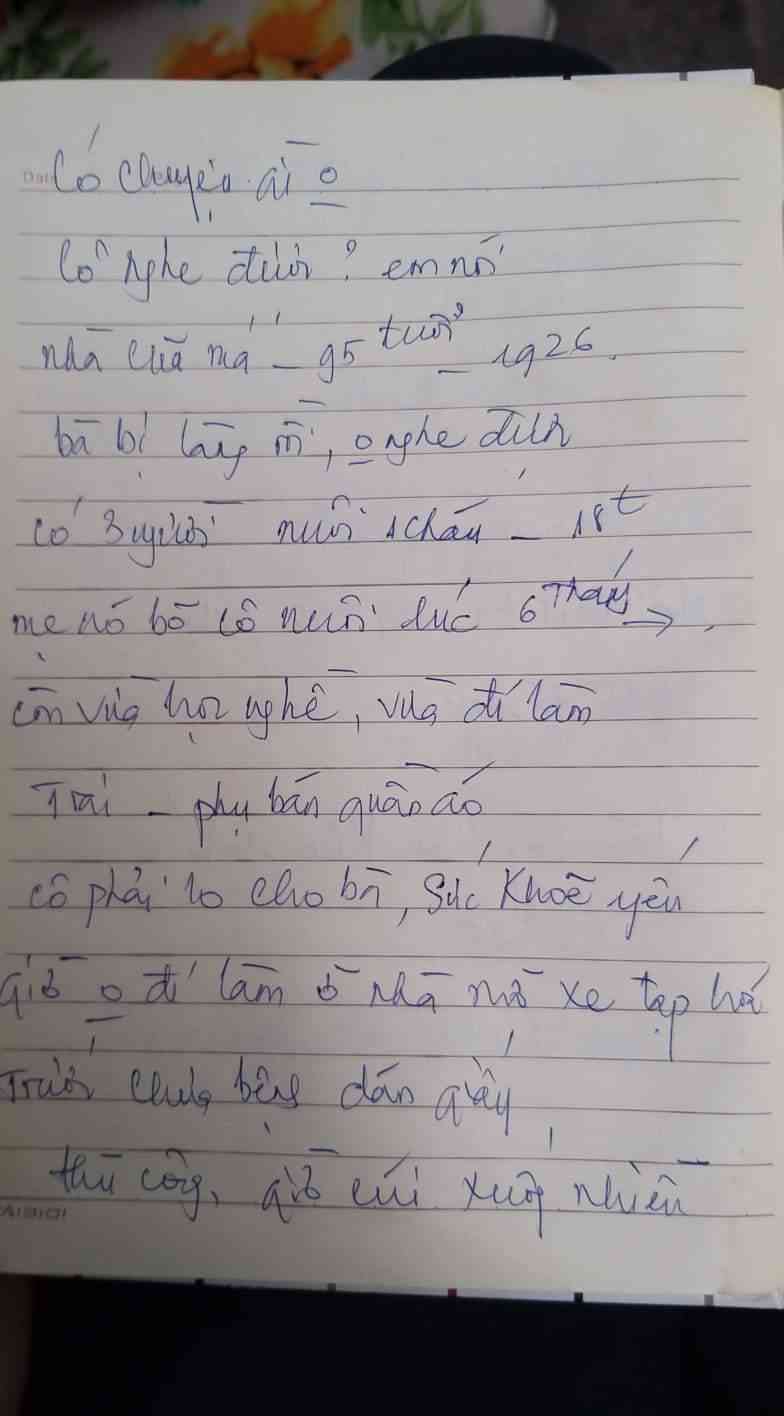 Có chuyện gì o
Cô nghe được? em nói
nhà của má - 95 tuổi - 1926.
bà bị lãng rồi, o nghe được
có 3 người nuôi 1 cháu - 18t
mẹ nó bỏ cô nuôi lúc 6 tháng →
còn vừa học nghề, vừa đi làm
Trai - phụ bán quần áo
cô phải lo cho bà, sức khoẻ yếu
giờ o đi làm ở nhà mở xe tạp hoá
Trước dán giấy
thủ công, giờ cúi xuống nhiều